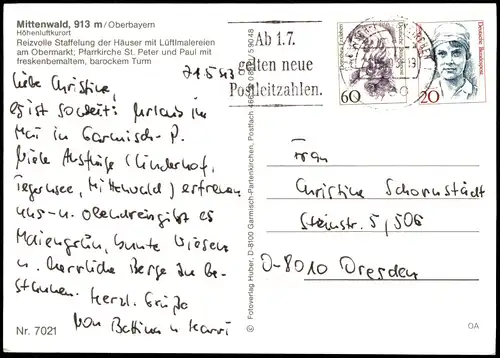 Mittenwald, 913 m/Oberbayern
Höhenluftkurort
Reizvolle Staffelung der Häuser mit Lüftlmalereien
am Obermarkt; Pfarrkirche St. Peter und Paul mit
freskenbemaltem, barockem Turm
21.5.93
Liebe Christine,
es ist soweit: Urlaub im
Mai in Garmisch-P.
Viele Ausflüge (Linderhof,
Tegernsee, Mittenwald) erfreuen
uns u. obendrein gibt es
Maiengrün, bunte Wiesen
u. herrliche Berge zu be-
staunen. Herzl. Grüße
von Bettina u.
Nr. 7021
© Fotoverlag Huber, D-8100 Garmisch-Partenkirchen, Postfach
Ab 1.7.
gelten neue
Postleitzahlen.
60
Deutsche Bundespost
20
Frau
Christine Schornstädt
Steinstr. 5, 506
D-8010 Dresden
OA